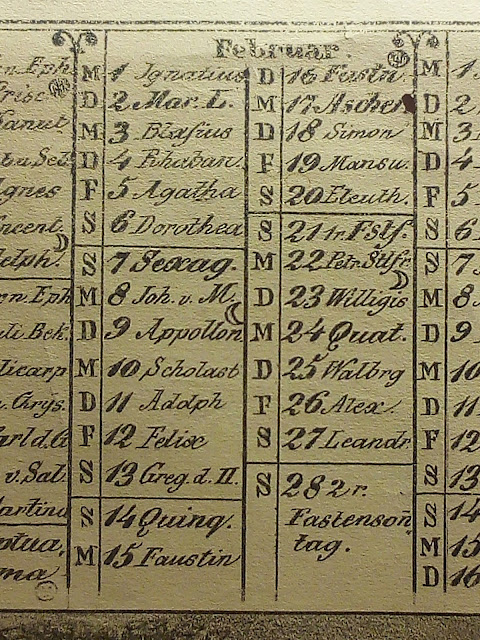 Februar.
M 1 Ignatius
D 2 Mar. L.
M 3 Blasius
D 4 Rhaban.
F 5 Agatha
S 6 Dorothea
S 7 Sexag.
M 8 Joh. v. M.
D 9 Appollon
M 10 Scholast
D 11 Adolph
F 12 Felix
S 13 Greg. d. II.
S 14 Quinq.
M 15 Faustin
D 16 Fastn.
M 17 Ascher
D 18 Simon
F 19 Mansu.
S 20 Eleuth.
S 21 1r Fstf.
M 22 Petr. Stlfr
D 23 Willigis
M 24 Quat.
D 25 Walbrg
F 26 Alex.
S 27 Leandr.
S 28 2r.
Fastenson̄
tag.
n. Eph
Prisc
Kanut
u. Seb.
Agnes
Vincent.
delph.
n. Eph
uli Bek.
licarp
. Chrys.
arl d. G
v. Sal.
Martina
ptua.
ma
M 1.
D 2
M 3
D 4
F 5
S 6
S 7
M 8
D 9
M 10
D 11
F 12
S 13
S 14
M 15
D 16